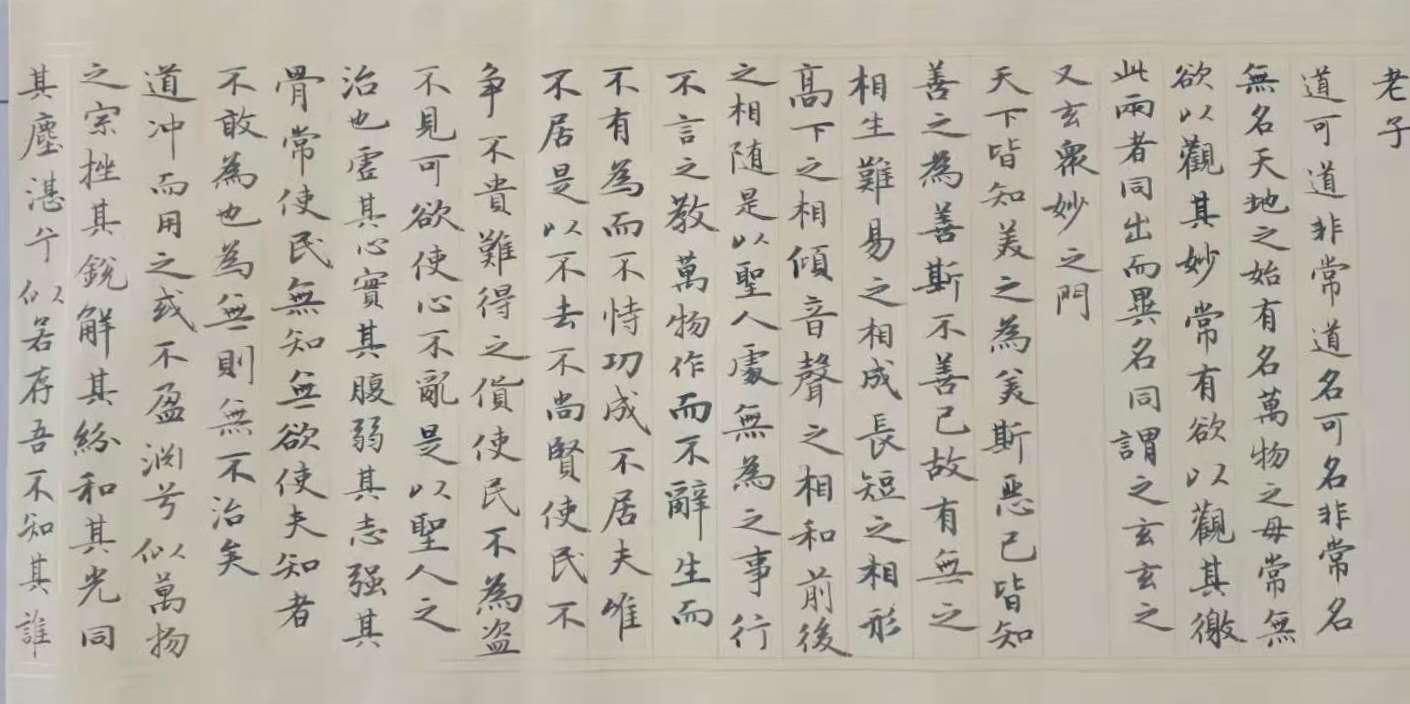 老子
道可道非常道名可名非常名
無名天地之始有名萬物之母常無
欲以觀其妙常有欲以觀其徼
此兩者同出而異名同謂之玄玄之
又玄眾妙之門
天下皆知美之為美斯惡已皆知
善之為善斯不善已故有無之
相生難易之相成長短之相形
高下之相傾音聲之相和前後
之相随是以聖人處無為之事行
不言之教萬物作而不辭生而
不有為而不恃功成不居夫唯
不居是以不去不尚賢使民不
爭不貴難得之貨使民不為盗
不見可欲使心不亂是以聖人之
治也虛其心實其腹弱其志强其
骨常使民無知無欲使夫知者
不敢為也為無則無不治矣
道冲而用之或不盈渊兮似萬物
之宗挫其銳解其紛和其光同
其塵湛兮似若存吾不知其誰